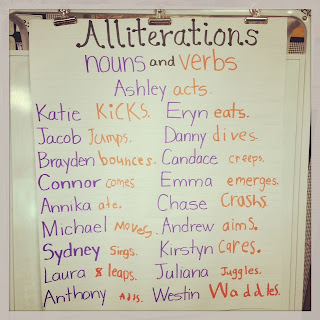 Alliterations
nouns and verbs
Ashley acts.
Katie KicKS. Eryn eats.
Jacob Jumps. Danny dives.
Brayden bounces. Candace creeps.
Connor comes Emma emerges.
Annika ate. Chase Crashs
Michael moves. Andrew aims.
Sydney Sings. Kirstyn Cares.
Laura leaps. Juliana Juggles.
Anthony Adds. Westin Waddles.